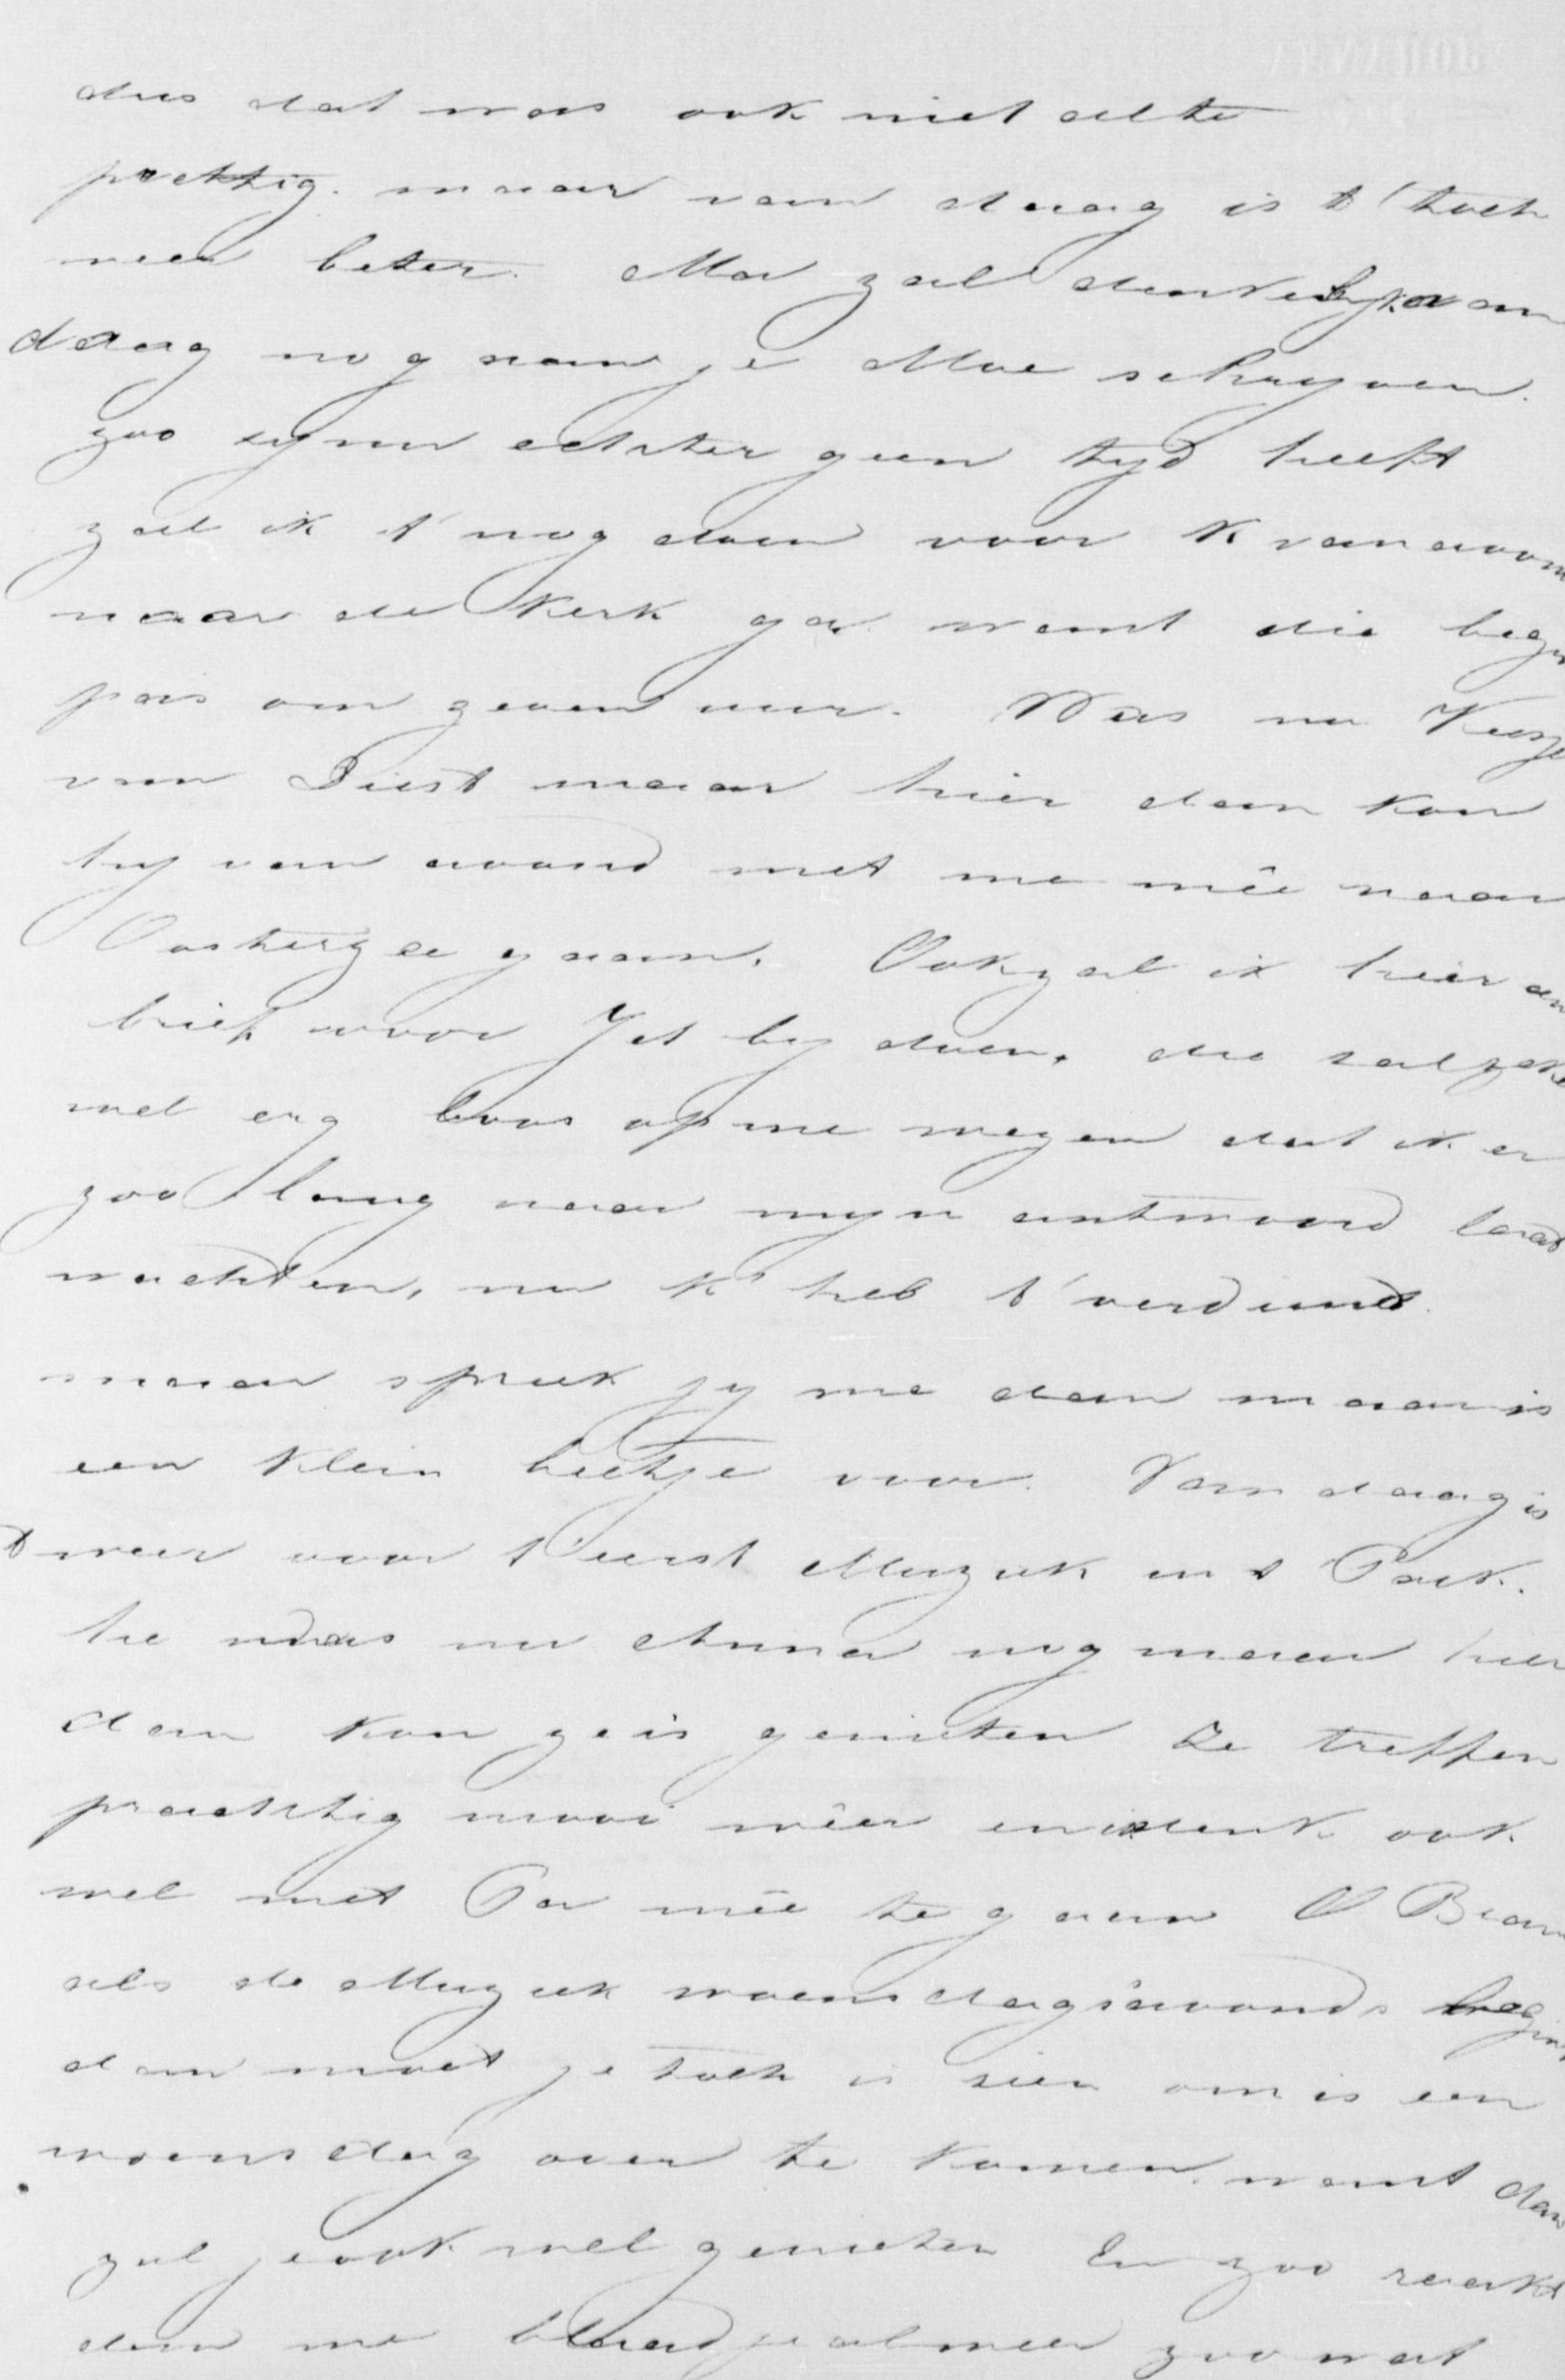 dus dat was ook niet al te
prettig. maar van daag is t' toch
weer beter. Ma zal denkelyk van
daag nog aan je Moe schryven.
zoo zynu echter geen tyd heeft
zal ik t' nog doen voor k van avon
naar de Kerk ga want die begi
pas om zeven uur. Was nu Keesje
van Diest maar hier dan kon
hy van avond met me mêe naar
Oosterzee gaan. Ook zal ik hier een
brief voor Jet by doen, die zal zeke
wel erg boos op me wezen dat ik er
zoo lang naar myn antwoord laat
wachten, nu k heb t' verdiend.
maar spreek jy me dan maar is
een klein beetje voor. Van daag is
t weer voor t' eerst Muziek in t Park.
he was nu Anna nog maar hier
dan kon ze is genieten Ze treffen
prachtig mooi wêer en ik denk ook
wel met Pa mêe te gaan O Bram
als de Muziek woensdagsavonds begint
dan moet je toch is zien om is een
woensdag over te komen. want dan
zul je ook wel genieten En zoo raakt
dan me blaadje al weer zoo wat